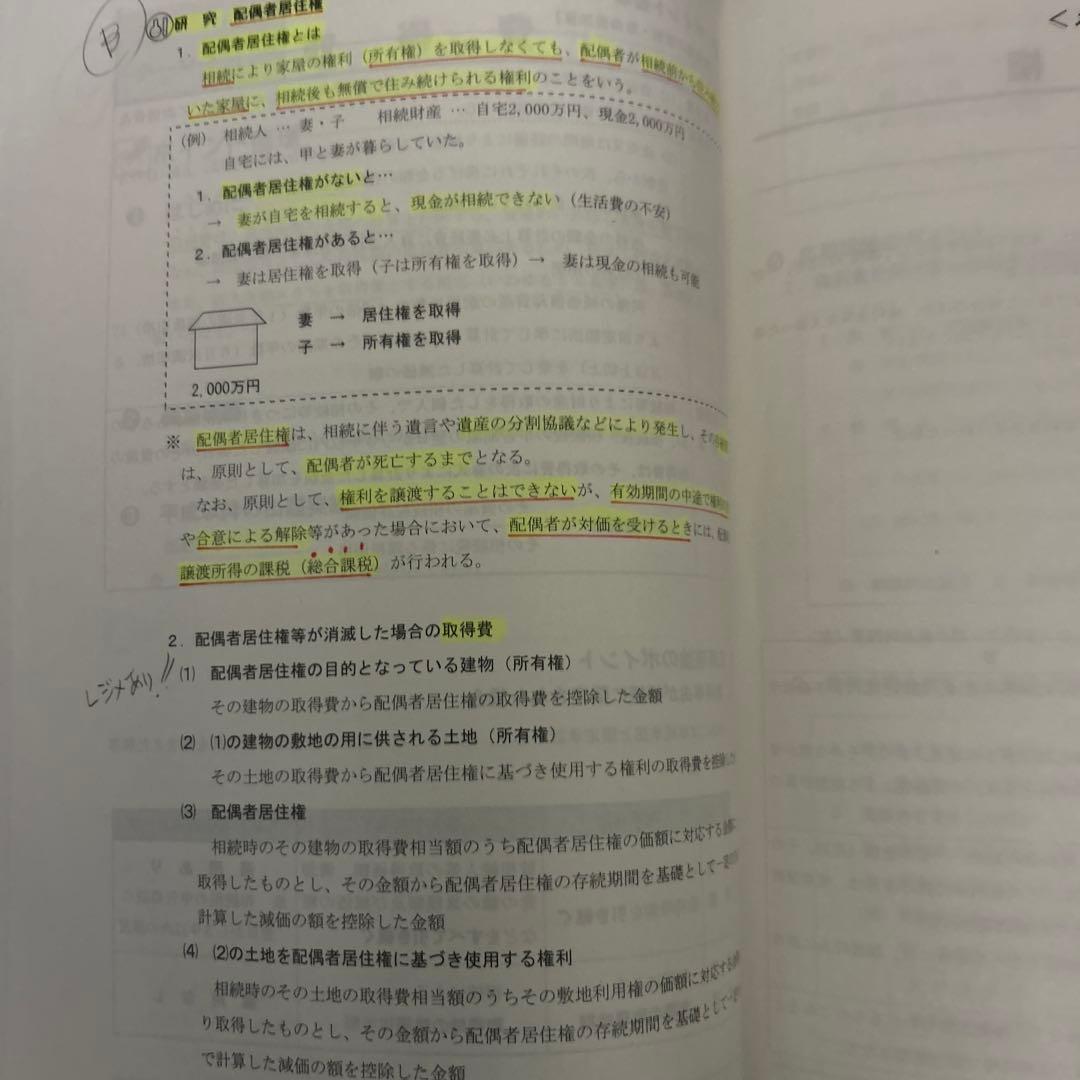 B
研究 配偶者居住権
1. 配偶者居住権とは
相続により家屋の権利（所有権）を取得しなくても、配偶者が相続前から
いた家屋に、相続後も無償で住み続けられる権利のことをいう。
(例) 相続人 … 妻・子 相続財産 … 自宅2,000万円、現金2,000万円
自宅には、甲と妻が暮らしていた。
1. 配偶者居住権がないと…
→ 妻が自宅を相続すると、現金が相続できない（生活費の不安）
2. 配偶者居住権があると…
→ 妻は居住権を取得（子は所有権を取得）→ 妻は現金の相続も可能
妻 → 居住権を取得
子 → 所有権を取得
2,000万円
※ 配偶者居住権は、相続に伴う遺言や遺産の分割協議などにより発生し、その
は、原則として、配偶者が死亡するまでとなる。
なお、原則として、権利を譲渡することはできないが、有効期間の中途で
や合意による解除等があった場合において、配偶者が対価を受けるときには、
譲渡所得の課税（総合課税）が行われる。
2. 配偶者居住権等が消滅した場合の取得費
レジメあり!!
(1) 配偶者居住権の目的となっている建物（所有権）
その建物の取得費から配偶者居住権の取得費を控除した金額
(2) (1)の建物の敷地の用に供される土地（所有権）
その土地の取得費から配偶者居住権に基づき使用する権利の取得費を控除した
(3) 配偶者居住権
相続時のその建物の取得費相当額のうち配偶者居住権の価額に対応する
取得したものとし、その金額から配偶者居住権の存続期間を基礎として一定の
計算した減価の額を控除した金額
(4) (2)の土地を配偶者居住権に基づき使用する権利
相続時のその土地の取得費相当額のうちその敷地利用権の価額に対応する
り取得したものとし、その金額から配偶者居住権の存続期間を基礎として
で計算した減価の額を控除した金額